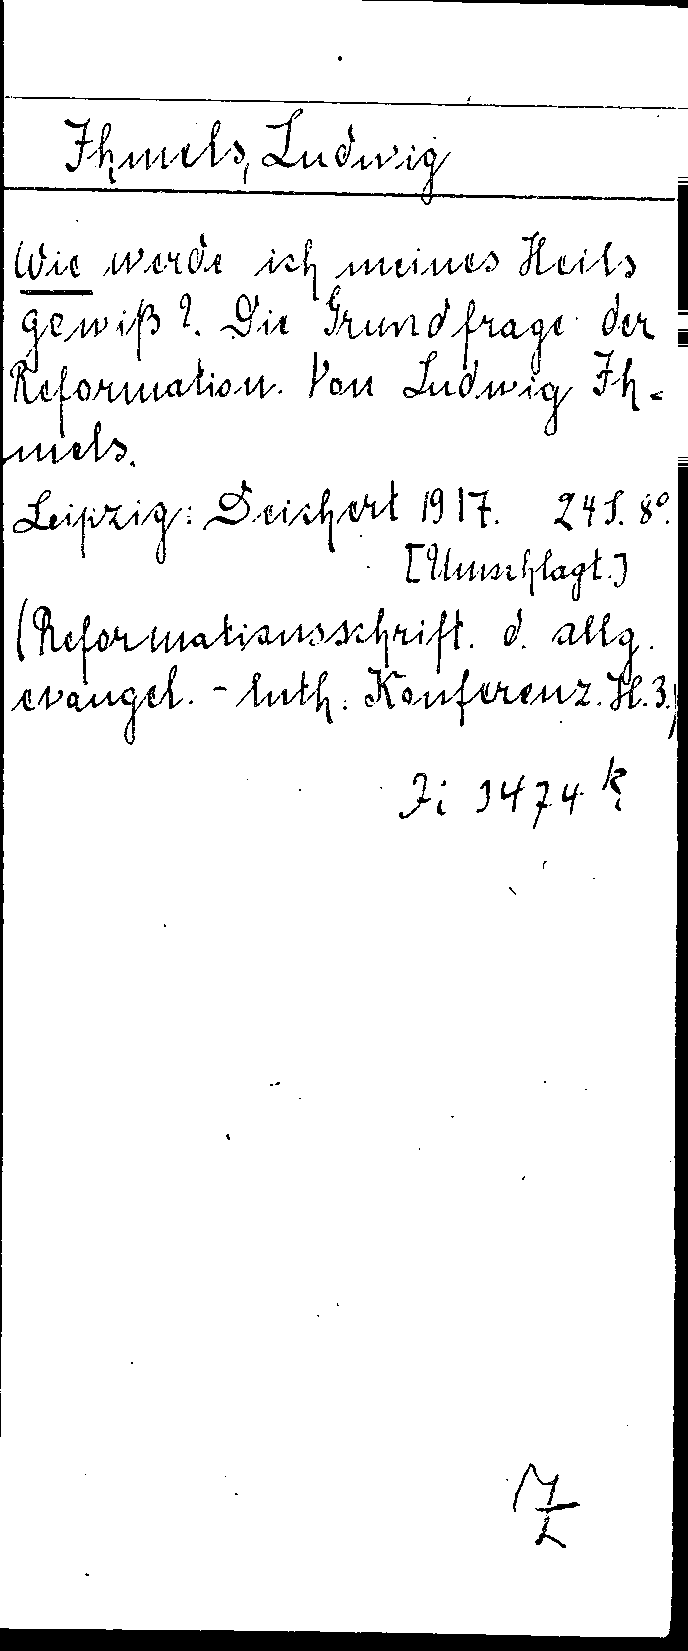 Ihmels, Ludwig
Wie werde ich meines Heils
gewiß?. Die Grundfrage der
Reformation. Von Ludwig Ih-
mels.
Leipzig: Deichert 1917. 24 S. 8°.
[Umschlagt.]
(Reformationsschrift. d. allg.
evangel. - luth. Konferenz. H. 3.)